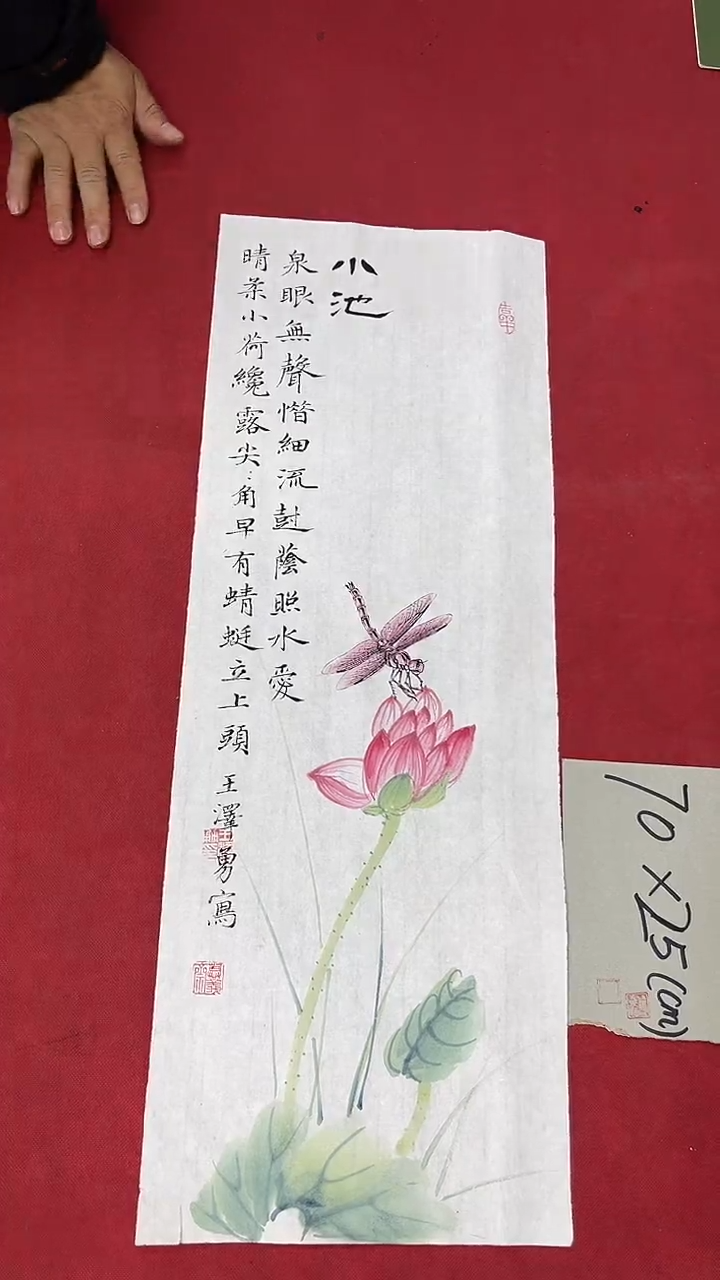 小池
泉眼無聲惜細流尌蔭照水愛
晴柔小荷纔露尖：角早有蜻蜓立上頭
王澤勇寫
70×25(cm)